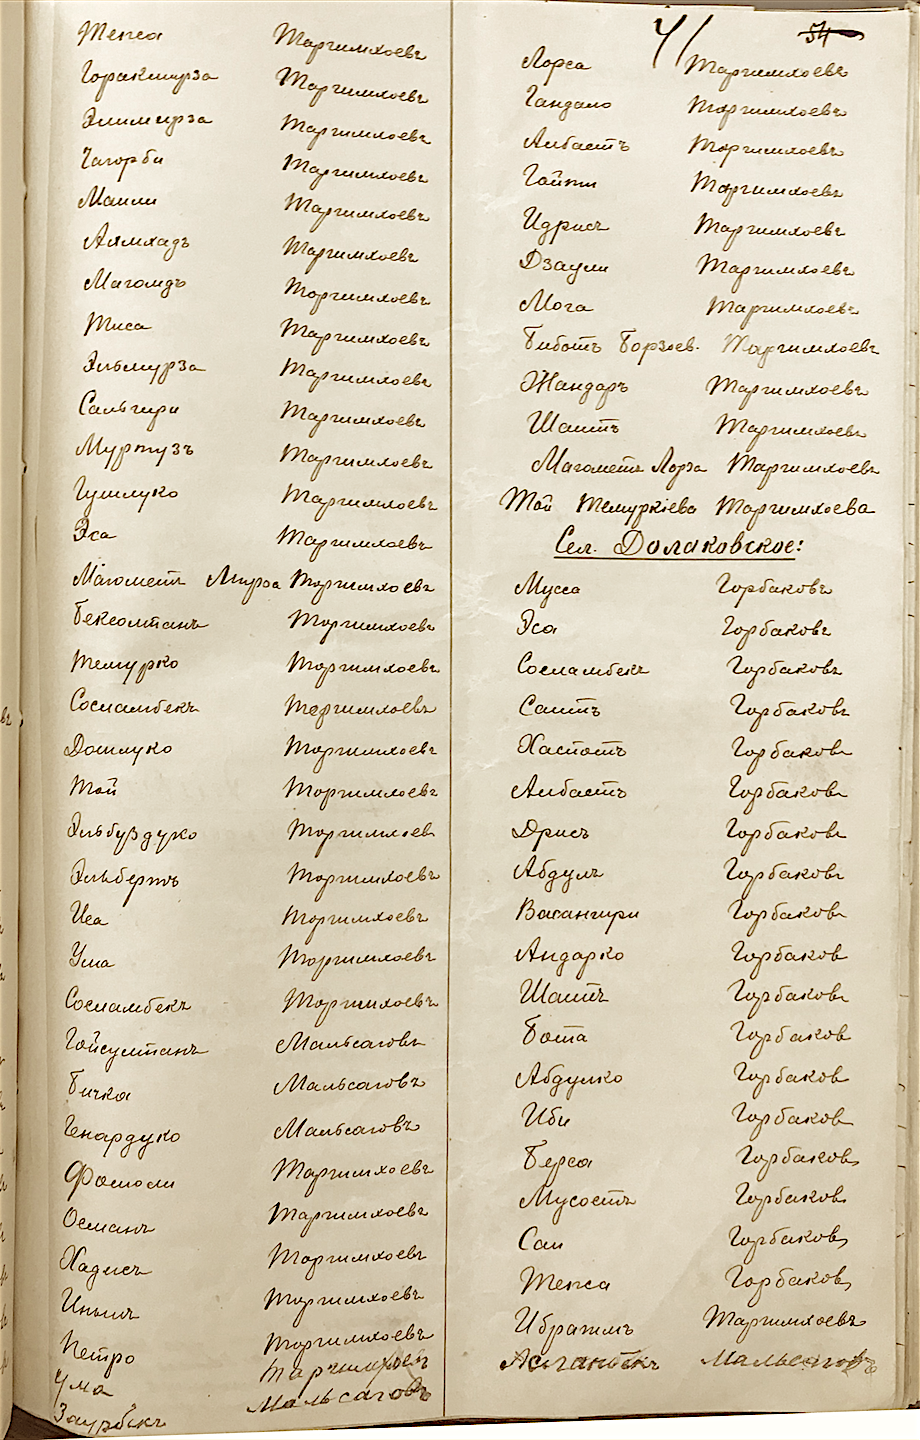 Тепса Таргимхоевъ
Горакмурза Таргимхоевъ
Элимурза Таргимхоевъ
Чагорби Таргимхоевъ
Маили Таргимхоевъ
Алмхадъ Таргимхоевъ
Магомдъ Таргимхоевъ
Тиса Таргимхоевъ
Эльмурза Таргимхоевъ
Сальгири Таргимхоевъ
Муртузъ Таргимхоевъ
Гушлуко Таргимхоевъ
Эса Таргимхоевъ
Магометъ Мирза Таргимхоевъ
Бексолтанъ Таргимхоевъ
Темурко Таргимхоевъ
Сосламбекъ Таргимхоевъ
Дошлуко Таргимхоевъ
Той Таргимхоевъ
Эльбуздуко Таргимхоев
Эльбертъ Таргимхоевъ
Иса Таргимхоевъ
Ума Таргимхоевъ
Сосламбекъ Таргимхоевъ
Гойсултанъ Мальсаговъ
Бичка Мальсаговъ
Генардуко Мальсаговъ
Таргимхоевъ
Османъ Таргимхоевъ
Хадисъ Таргимхоевъ
Таргимхоевъ
Петро Таргимхоевъ
Ума Таргимхоевъ
Заурбекъ Мальсаговъ
41 54
Лорса Таргимхоевъ
Гандало Таргимхоевъ
Албастъ Таргимхоевъ
Гойти Таргимхоевъ
Идрисъ Таргимхоевъ
Дзаули Таргимхоевъ
Мога Таргимхоевъ
Биботъ Борзоев. Таргимхоевъ
Жандаръ Таргимхоевъ
Шаитъ Таргимхоевъ
Магометъ Лорза Таргимхоевъ
Той Темуркіева Таргимхоева
Сел. Долаковское:
Мусса Горбаковъ
Эса Горбаковъ
Сосламбекъ Горбаковъ
Саитъ Горбаковъ
Хаспотъ Горбаковъ
Албастъ Горбаковъ
Дрисъ Горбаковъ
Абдулъ Горбаковъ
Васангири Горбаковъ
Андарко Горбаковъ
Шаитъ Горбаковъ
Бота Горбаковъ
Абдулко Горбаковъ
Иби Горбаковъ
Берса Горбаковъ
Мусостъ Горбаковъ
Саи Горбаковъ
Тепса Горбаковъ
Ибрагимъ Таргимхоевъ
Асланбекъ Мальсаговъ